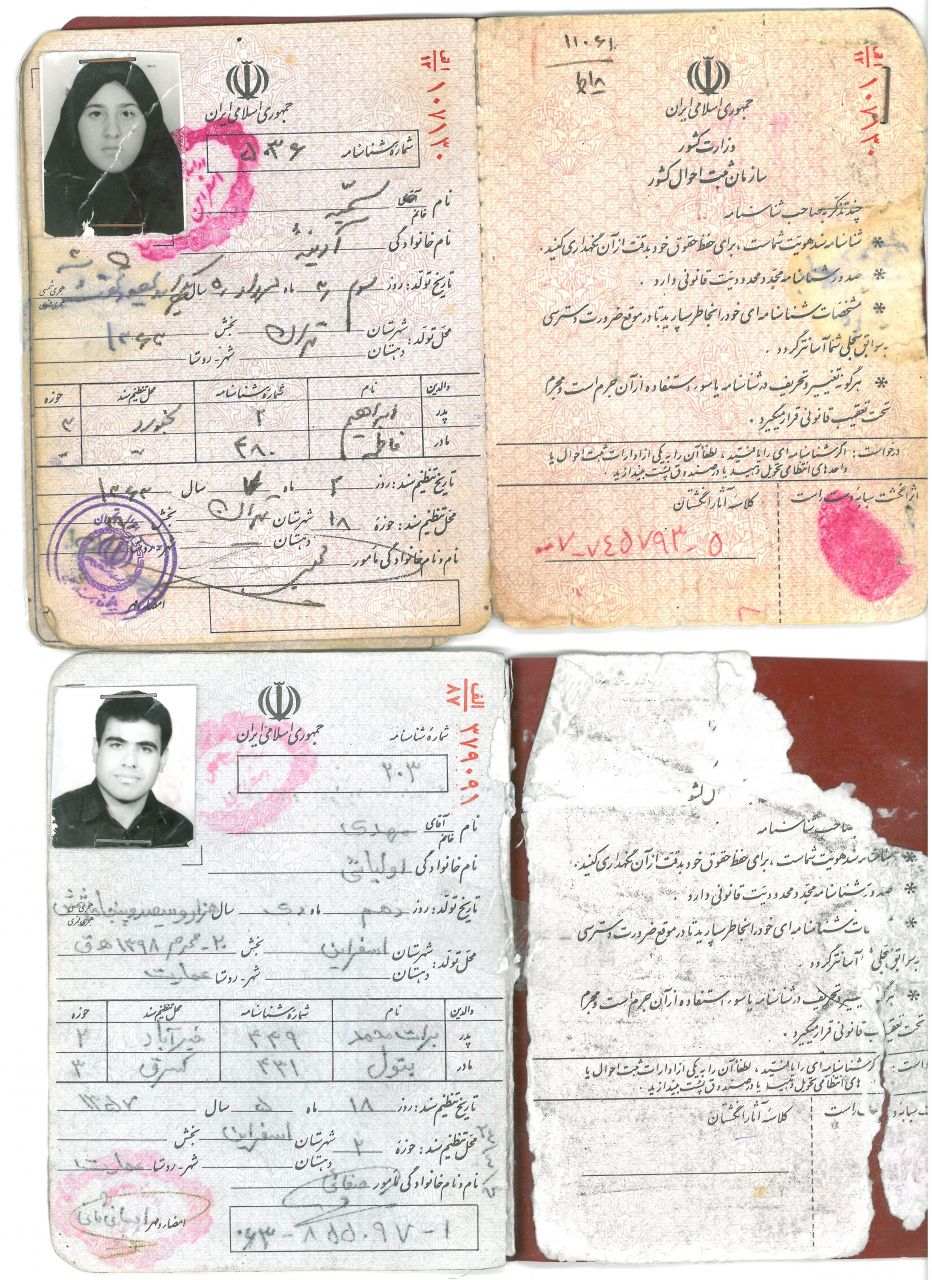 الف ۱۲ ۱۰۷۱۳۰
جمهوری اسلامی ایران
شماره شناسنامه ۵۳۶
نام آقای خانم سمیه
نام خانوادگی آدینه
تاریخ تولد: روز سوم ماه سال
هجری شمسی هجری قمری
محل تولد: شهرستان تهران بخش ۱۳۶۳
دهستان شهر-روستا
والدین نام شماره شناسنامه محل تنظیم سند حوزه
پدر ابراهیم ۲ ۳
مادر فاطمه ۴۸۰
تاریخ تنظیم سند: روز ۳ ماه ۷ سال ۱۳۶۳
محل تنظیم سند: حوزه ۱۸ شهرستان تهران بخش
دهستان
نام و نام خانوادگی مأمور
امضاء و مهر
۱۱۰۶۱
الف ۱۲ ۱۰۷۱۳۰
جمهوری اسلامی ایران
وزارت کشور
سازمان ثبت احوال کشور
چند تذکر به صاحب شناسنامه
* شناسنامه سند هویت شماست، برای حفظ حقوق خود بدقت از آن نگهداری کنید.
* صدور شناسنامه مجدد محدودیت قانونی دارد.
* مشخصات شناسنامه ای خود را بخاطر بسپارید تا در موقع ضرورت دسترسی
به سوابق سجلی شما آسانتر گردد.
* هرگونه تغییر و تحریف در شناسنامه یا سوء استفاده از آن جرم است و مجرم
تحت تعقیب قانونی قرار میگیرد.
درخواست: اگر شناسنامه ای را یافتید، لطفاً آن را به یکی از ادارات ثبت احوال یا
واحدهای انتظامی تحویل دهید یا در صندوق پست بیندازید.
اثر انگشت سبابه دست راست
کلاسه آثار انگشتان
۷-۷۴۵۷۹۳-۵
الف ۸۷ ۳۷۹۰۹۱
جمهوری اسلامی ایران
شماره شناسنامه
۲۰۳
نام آقای خانم مهدی
نام خانوادگی اولیائی
تاریخ تولد: روز دهم ماه دی سال هزار و سیصد و پنجاه و شش
هجری شمسی هجری قمری
محل تولد: شهرستان اسفراین بخش ۲۰-محرم ۱۳۹۸ ه ق
دهستان شهر-روستا عمارت
والدین نام شماره شناسنامه محل تنظیم سند حوزه
پدر برات محمد ۴۴۹ خیرآباد ۲
مادر بتول ۴۳۱ ۳
تاریخ تنظیم سند: روز ۱۸ ماه ۵ سال ۱۳۵۷
محل تنظیم سند: حوزه ۲ شهرستان اسفراین بخش
دهستان شهر-روستا عمارت
نام و نام خانوادگی مأمور صفائی
امضاء و مهر
۰۶۳-۸۵۵۰۹۷-۱
صاحب شناسنامه
* شناسنامه سند هویت شماست، برای حفظ حقوق خود بدقت از آن نگهداری کنید.
* صدور شناسنامه مجدد محدودیت قانونی دارد.
* ات شناسنامه ای خود را بخاطر بسپارید تا در موقع ضرورت دسترسی
به سوابق سجلی آسانتر گردد.
* هرگونه تغییر و تحریف در شناسنامه یا سوء استفاده از آن جرم است و مجرم
تحت تعقیب قانونی قرار میگیرد.
گر شناسنامه ای را یافتید، لطفاً آن را به یکی از ادارات ثبت احوال یا
های انتظامی تحویل دهید یا در صندوق پست بیندازید.
سبابه راست
کلاسه آثار انگشتان